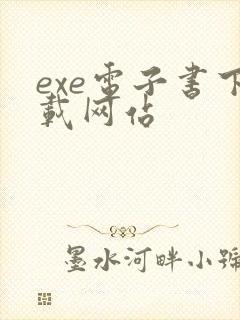 exe電子書下
載网站
墨水河畔小號